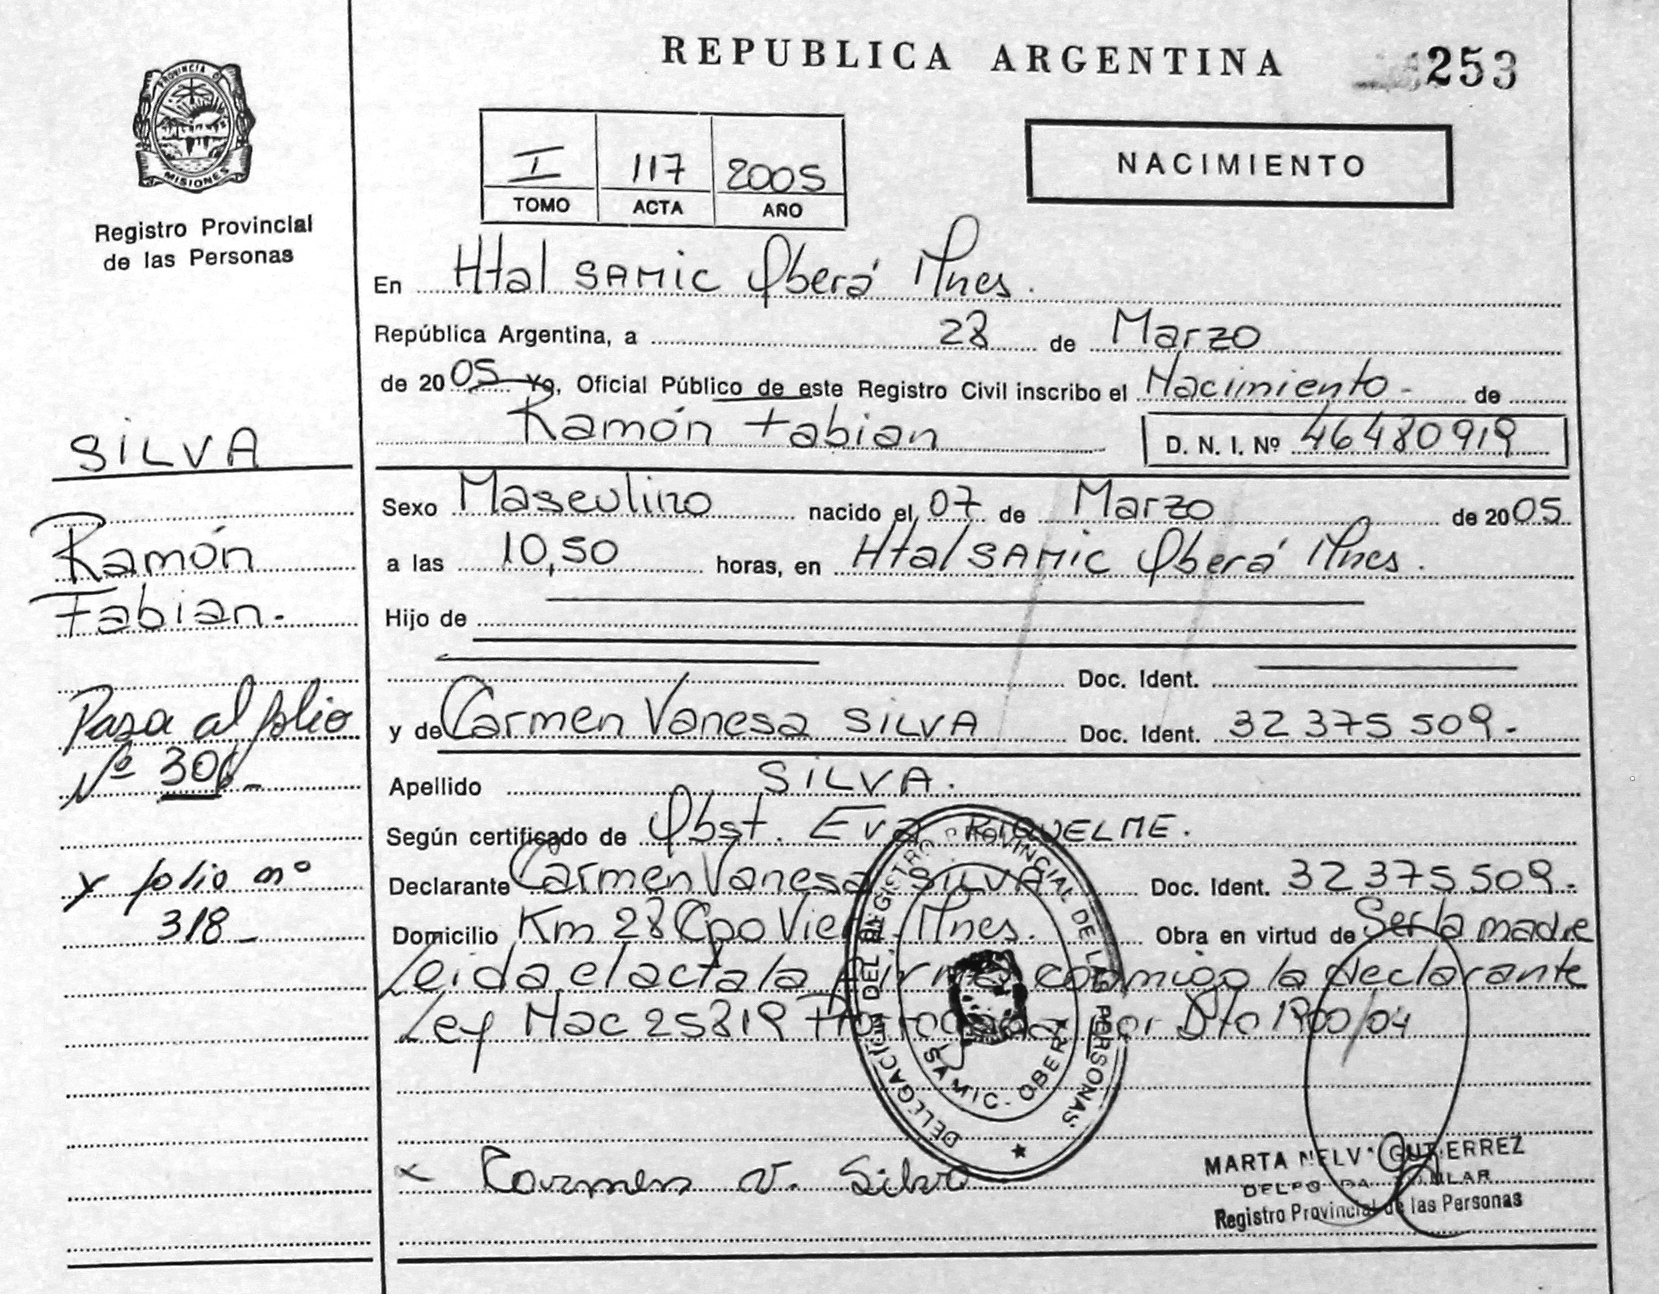 REPUBLICA ARGENTINA
253
PROVINCIA D
MISIONES
Registro Provincial
de las Personas
I 117 2005
TOMO ACTA AÑO
NACIMIENTO
En Htal SAMIC Oberá Mnes.
República Argentina, a 28 de Marzo
de 2005 Yo, Oficial Público de este Registro Civil inscribo el Nacimiento - de
Ramón Fabian
D. N. I. Nº 46480919
SILVA
Ramón
Fabian.-
Pasa al folio
Nº 306-
y folio nº
318-
Sexo Masculino nacido el 07 de Marzo de 2005
a las 10,50 horas, en Htal SAMIC Oberá Mnes.
Hijo de
Doc. Ident.
y de Carmen Vanesa SILVA Doc. Ident. 32375509.-
Apellido SILVA.
Según certificado de Obst. Eva RIQUELME.
Declarante Carmen Vanesa SILVA Doc. Ident. 32375509.-
Domicilio Km 28 Cpo Viera Mnes. Obra en virtud de Ser la madre
Leida el acta la firma conmigo la declarante
Ley Nac 25819 Prorrogada por Dto 1900/04
DELEGACION DEL REGISTRO PROVINCIAL DE LAS PERSONAS
SAMIC - OBERA
x Carmen V. Silva
MARTA NELVA GUTIERREZ
Registro Provincial de las Personas